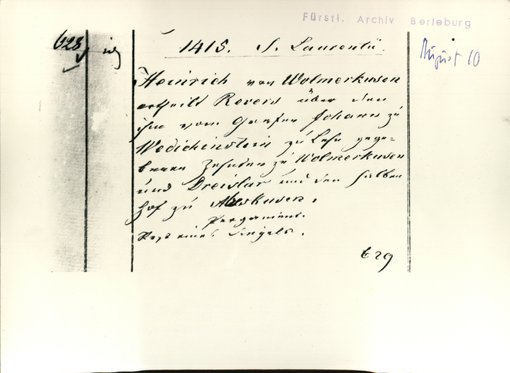 Fürstl. Archiv Berleburg
628
1415. S. Laurentii.
August 10
Heinrich von Wolmerkusen
ertheilt Revers über den
ihm vom Grafen Johann zu
Wedichenstein zu Lehn gege-
benen Zehnten zu Wolmerkusen
und Dreislar und den halben
Hof zu
Pergament.
Rest eines Siegels.
629